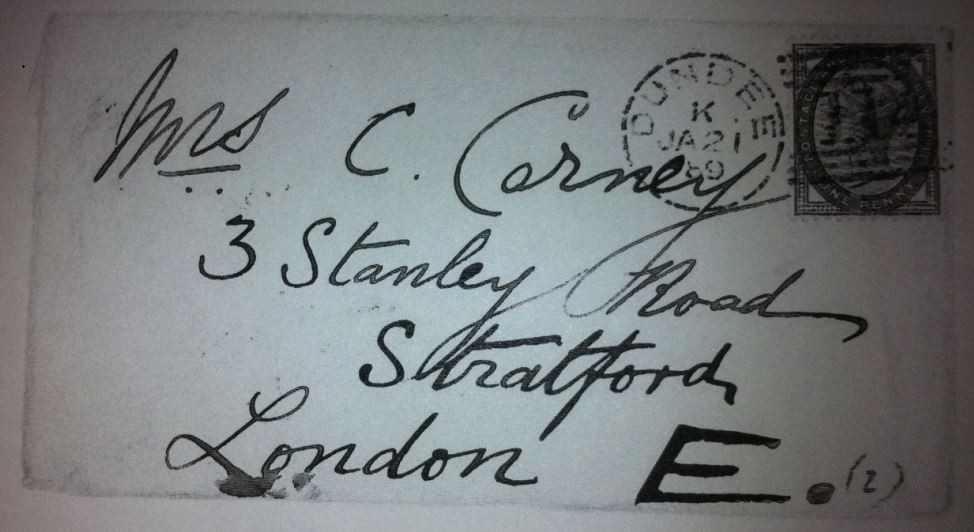 Mrs C. Carney
3 Stanley Road
Stratford
London E.
(2)
DUNDEE
K
JA 21
89
POSTAGE
ONE PENNY